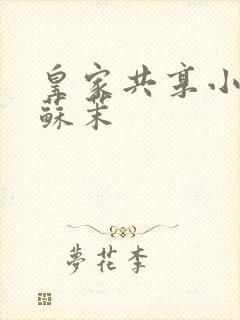 皇家共享小
蘇茉
夢花李